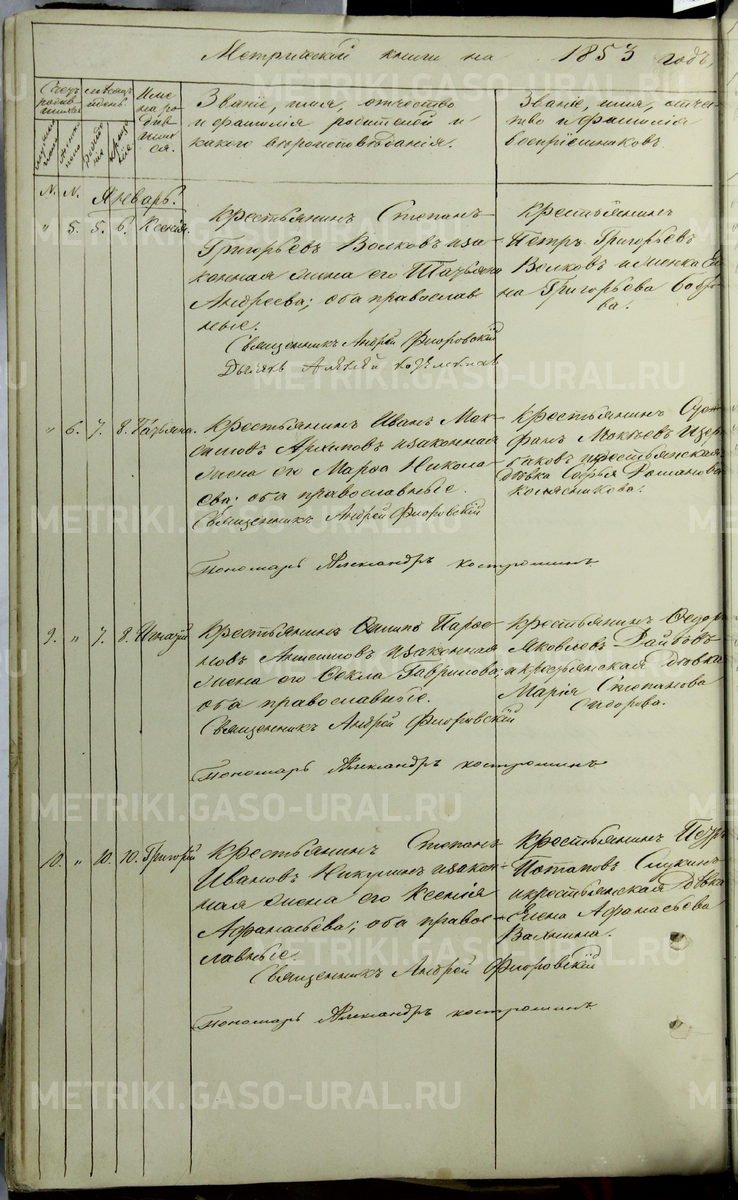 Метрической книги на 1853 годъ
Счетъ родившихся
мѣсяцъ и день
Имена родившихся.
Званіе, имя, отчество
и фамилія родителей и
какого вѣроисповѣданія.
Званіе, имя, отче-
тво и фамилія
воспріемниковъ.
мужеска
женска
рожденія
крещенія
N. N. Январь.
" 5. 5. 6. Ксенія.
Крестьянинъ Степанъ
Григорьевъ Волковъ и за-
конная жена его Татьяна
Андреева; оба православ-
ные.
Священникъ Андрей Флоровскій
Дьячекъ Алексѣй
Крестьянинъ
Петръ Григорьевъ
Волковъ и женка
на Григорьева Бобро-
ва.
" 6. 7. 8. Татьяна.
Крестьянинъ Иванъ Мак-
симовъ Архиповъ и законная
жена его Марѳа Никола-
ева; оба православные.
Священникъ Андрей Флоровскій
Пономарь Александръ Костроминъ
Крестьянинъ
и крестьянская
дѣвка Софья Романова
9. " 7. 8. Игнатій
Крестьянинъ Осипъ Парѳе-
новъ и законная
жена его Ѳекла Гаврилова;
оба православные.
Священникъ Андрей Флоровскій
Пономарь Александръ Костроминъ
Крестьянинъ Ѳедоръ
Яковлевъ
и крестьянская дѣвка
Марія Степанова
Сидорова.
10. " 10. 10. Григорій
Крестьянинъ Степанъ
Ивановъ Никулинъ и закон-
ная жена его Ксенія
Афанасьева; оба право-
славные.
Священникъ Андрей Флоровскій
Пономарь Александръ Костроминъ
Крестьянинъ Петръ
Потаповъ
и крестьянская дѣвка
Елена Афанасьева
Вахнина.
METRIKI.GASO-URAL.RU